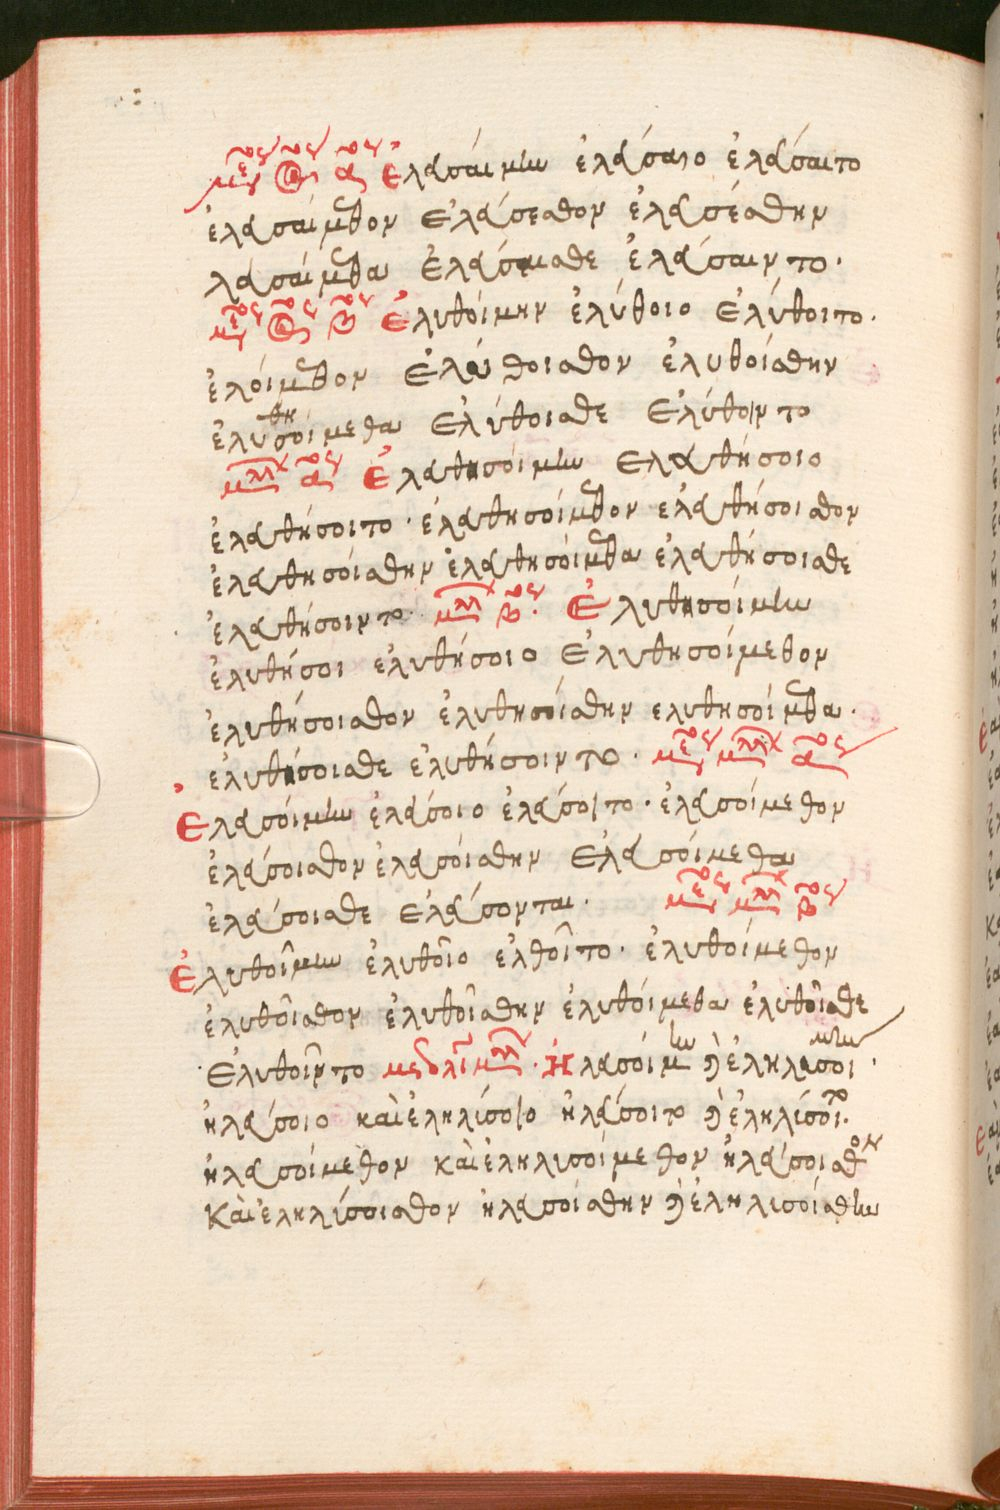 ἐλασαίμην ἐλάσαιο ἐλάσαιτο
ἐλασαίμεθον ἐλάσεσθον ἐλασέσθην
λασαίμεθα ἐλάσαισθε ἐλάσαιντο.
ἐλυθοίμην ἐλύθοιο ἐλύθοιτο.
ἐλοίμεθον ἐλύθοισθον ἐλυθοίσθην
ἐλυθησοίμεθα ἐλύθοισθε ἐλύθοιντο
ἐλαθησοίμην ἐλαθήσοιο
ἐλαθήσοιτο. ἐλαθησοίμεθον ἐλαθήσοισθον
ἐλαθησοίσθην ἐλαθησοίμεθα ἐλαθήσοισθε
ἐλαθήσοιντο. ἐλυθησοίμην
ἐλυθήσοι ἐλυθήσοιο ἐλυθησοίμεθον
ἐλυθήσοισθον ἐλυθησοίσθην ἐλυθησοίμεθα.
ἐλυθήσοισθε ἐλυθήσοιντο.
ἐλασοίμην ἐλάσοιο ἐλάσοιτο. ἐλασοίμεθον
ἐλάσοισθον ἐλασοίσθην ἐλασοίμεθα
ἐλάσοισθε ἐλάσονται.
ἐλυθοῖμην ἐλυθοῖο ἐλθοῖτο. ἐλυθοίμεθον
ἐλυθοῖσθον ἐλυθοῖσθην ἐλυθοίμεθα ἐλυθοῖσθε
ἐλυθοῖντο ἠλασοίμην καὶ ἐληλισοίμην.
ἠλάσοιο καὶ ἐληλίσοιο ἠλάσοιτο καὶ ἐληλίσοιτο.
ἠλασοίμεθον καὶ ἐληλισοίμεθον ἠλάσοισθον
καὶ ἐληλίσοισθον ἠλασοίσθην καὶ ἐληλισοίσθην